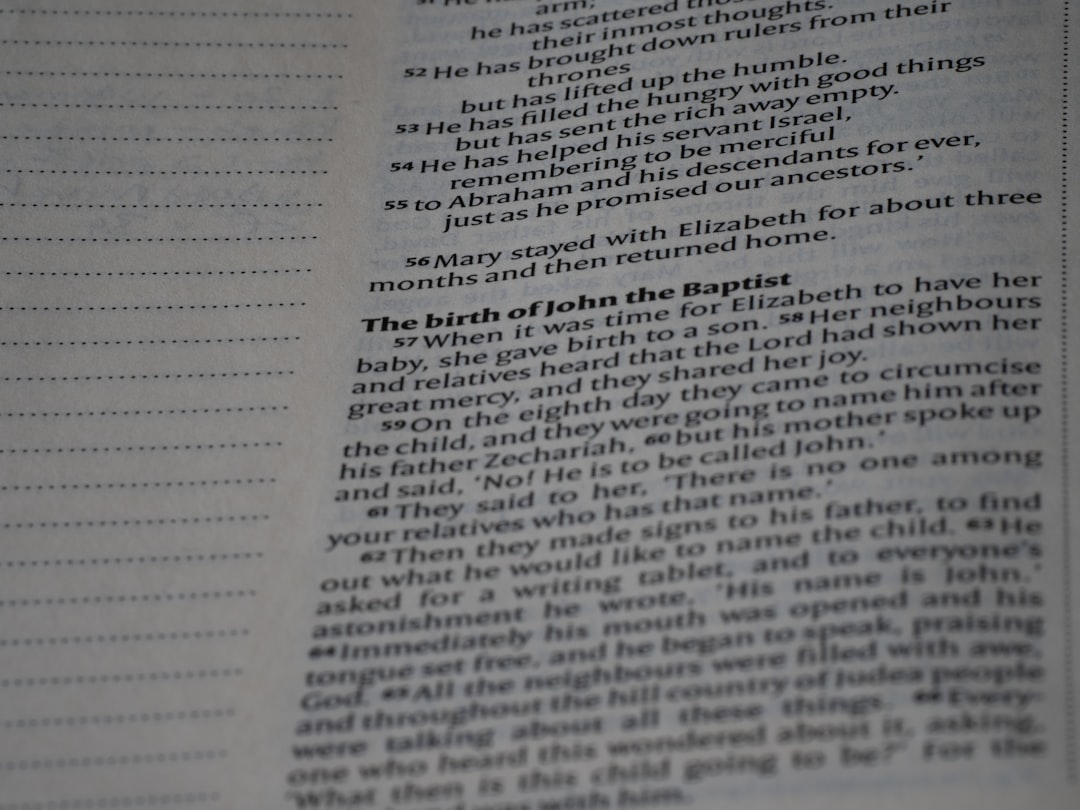 arm;
he has scattered those
their inmost thoughts.
52 He has brought down rulers from their
thrones
but has lifted up the humble.
53 He has filled the hungry with good things
but has sent the rich away empty.
54 He has helped his servant Israel,
remembering to be merciful
55 to Abraham and his descendants for ever,
just as he promised our ancestors.’
56 Mary stayed with Elizabeth for about three
months and then returned home.
The birth of John the Baptist
57 When it was time for Elizabeth to have her
baby, she gave birth to a son. 58 Her neighbours
and relatives heard that the Lord had shown her
great mercy, and they shared her joy.
59 On the eighth day they came to circumcise
the child, and they were going to name him after
his father Zechariah, 60 but his mother spoke up
and said, ‘No! He is to be called John.’
61 They said to her, ‘There is no one among
your relatives who has that name.’
62 Then they made signs to his father, to find
out what he would like to name the child. 63 He
asked for a writing tablet, and to everyone’s
astonishment he wrote, ‘His name is John.’
64 Immediately his mouth was opened and his
tongue set free, and he began to speak, praising
God. 65 All the neighbours were filled with awe,
and throughout the hill country of Judea people
were talking about all these things. 66 Every-
one who heard this wondered about it, asking,
‘What then is this child going to be?’ For the
was with him.